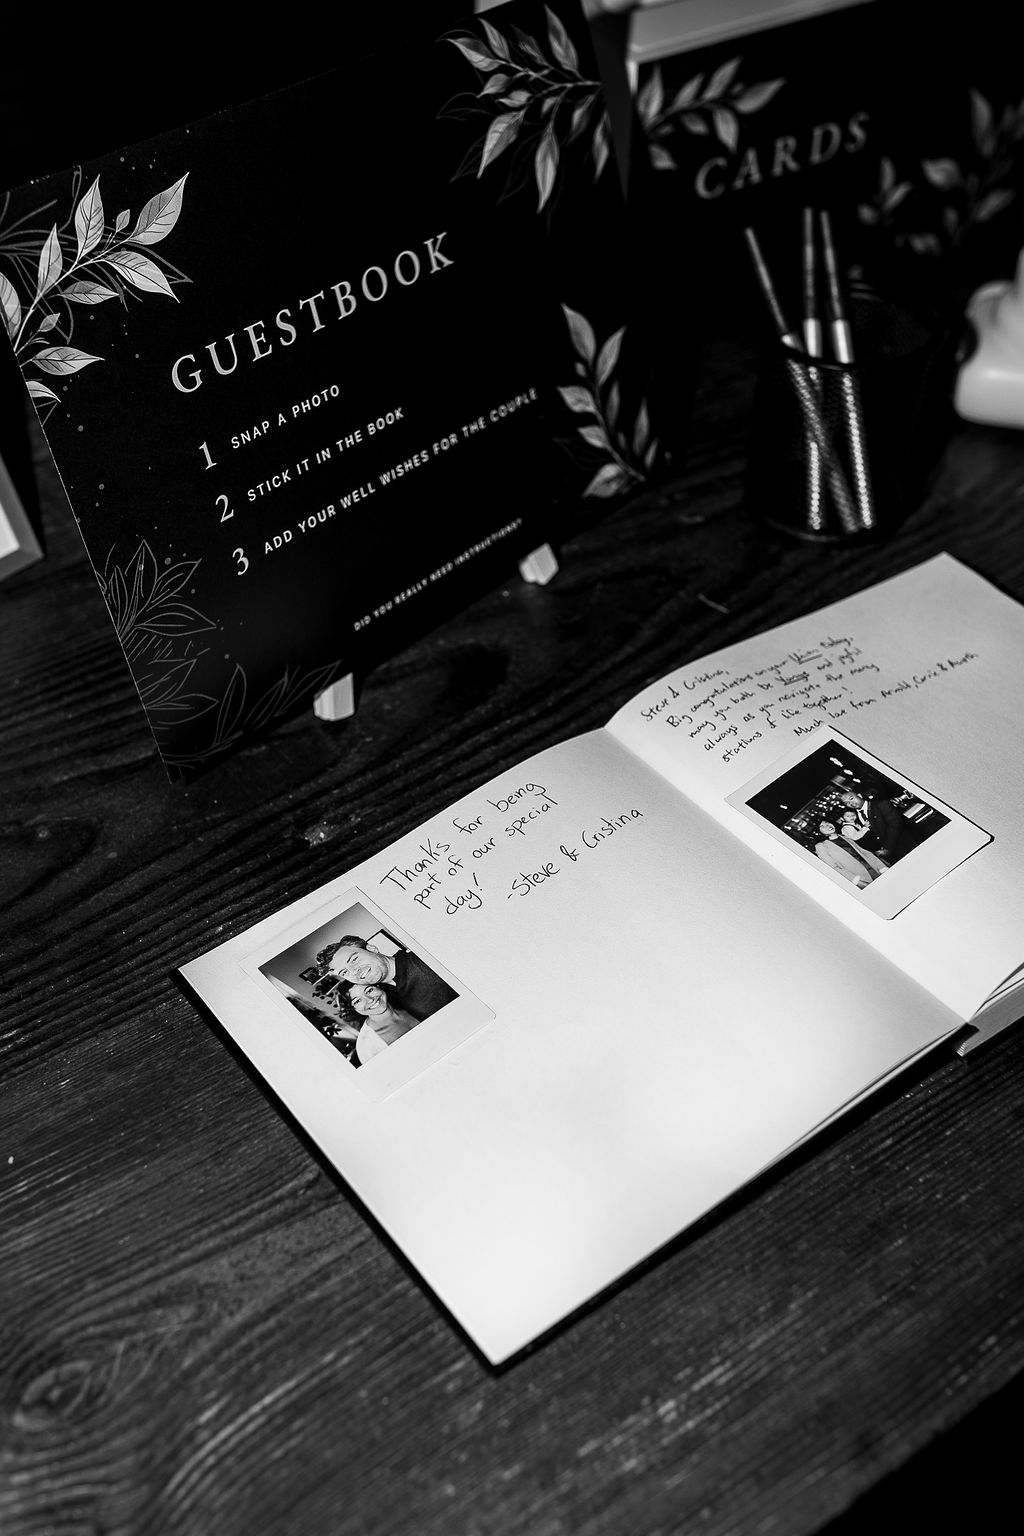 GUESTBOOK
1 SNAP A PHOTO
2 STICK IT IN THE BOOK
3 ADD YOUR WELL WISHES FOR THE COUPLE
DID YOU REALLY NEED INSTRUCTIONS?
CARDS
Thanks for being
part of our special
day!
-Steve & Cristina
Steve & Cristina,
Big congratulations on your
may you both be and joyful
always as you navigate the many
stations of life together!
Much love from Arnold, Carrie &